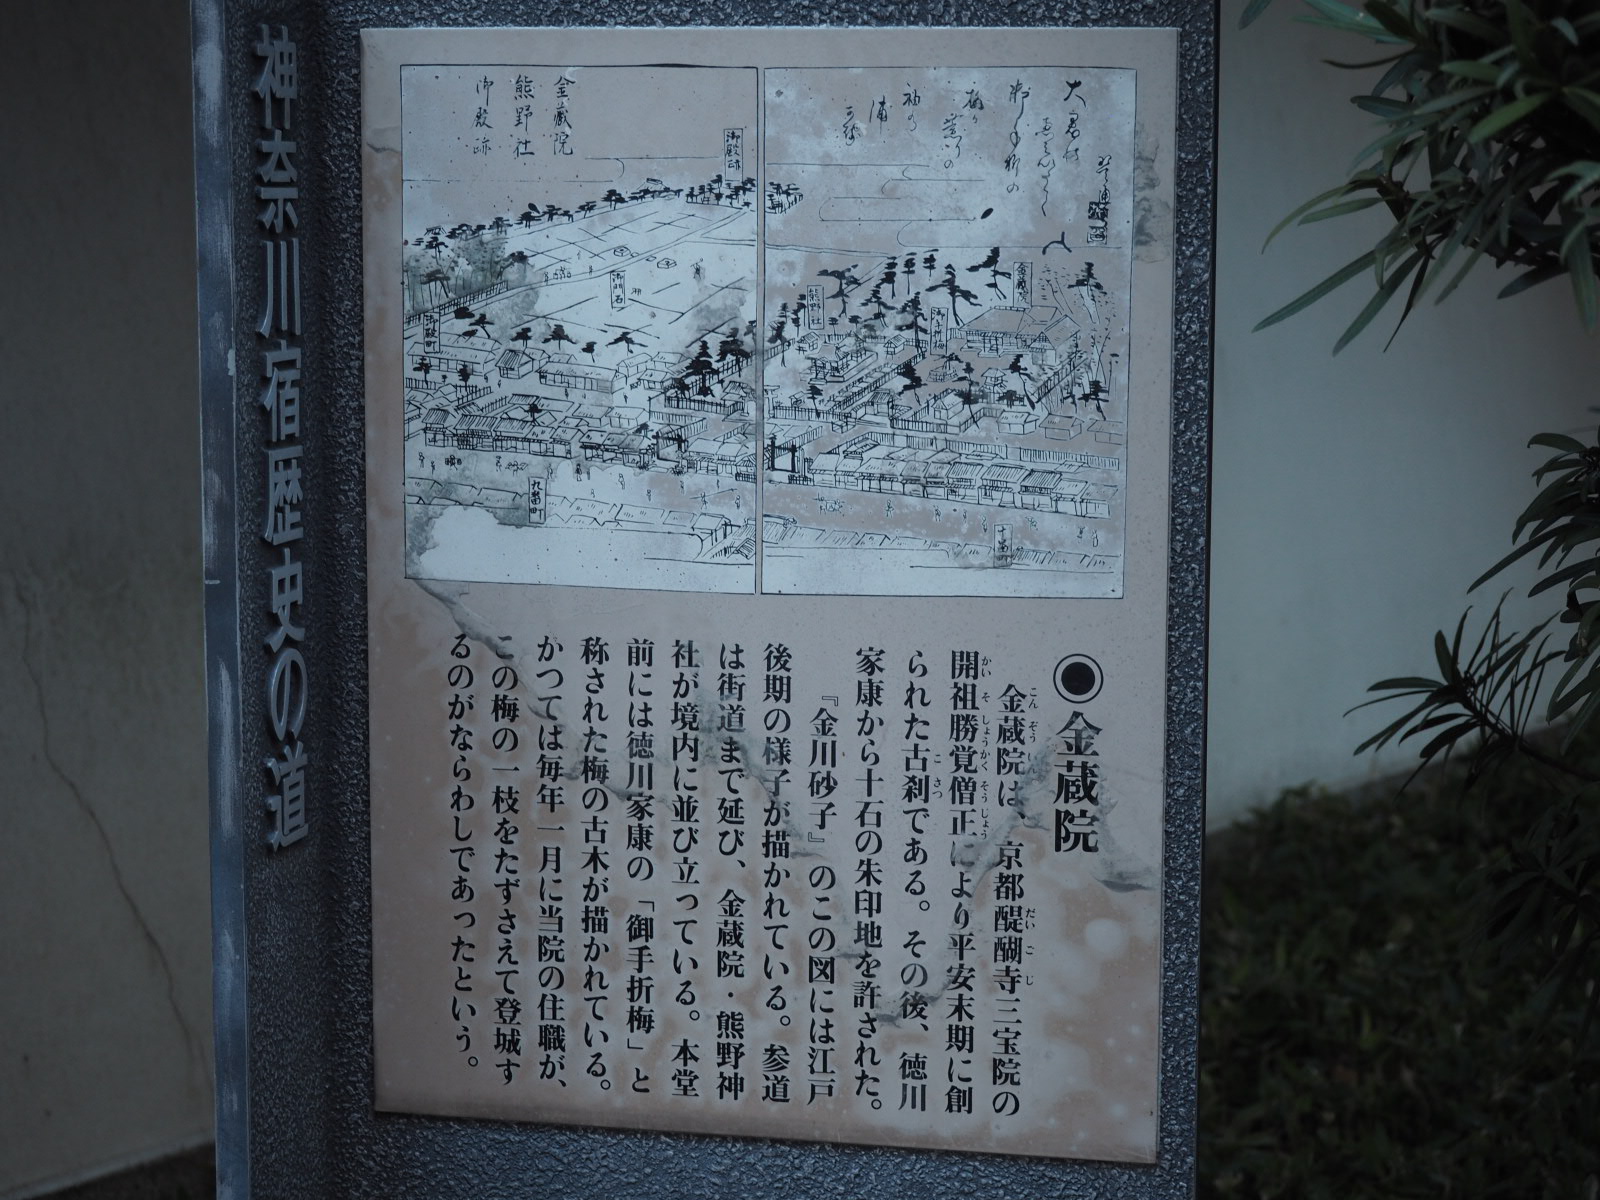 神奈川宿歴史の道
金蔵院
熊野社
御殿跡
御殿跡
御門石
御殿町
九番町
熊野社
金蔵院
十番町
◉金蔵院
金蔵院は、京都醍醐寺三宝院の
開祖勝覚僧正により平安末期に創
られた古刹である。その後、徳川
家康から十石の朱印地を許された。
『金川砂子』のこの図には江戸
後期の様子が描かれている。参道
は街道まで延び、金蔵院・熊野神
社が境内に並び立っている。本堂
前には徳川家康の「御手折梅」と
称された梅の古木が描かれている。
かつては毎年一月に当院の住職が、
この梅の一枝をたずさえて登城す
るのがならわしであったという。